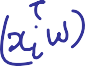 (x_i^T w)